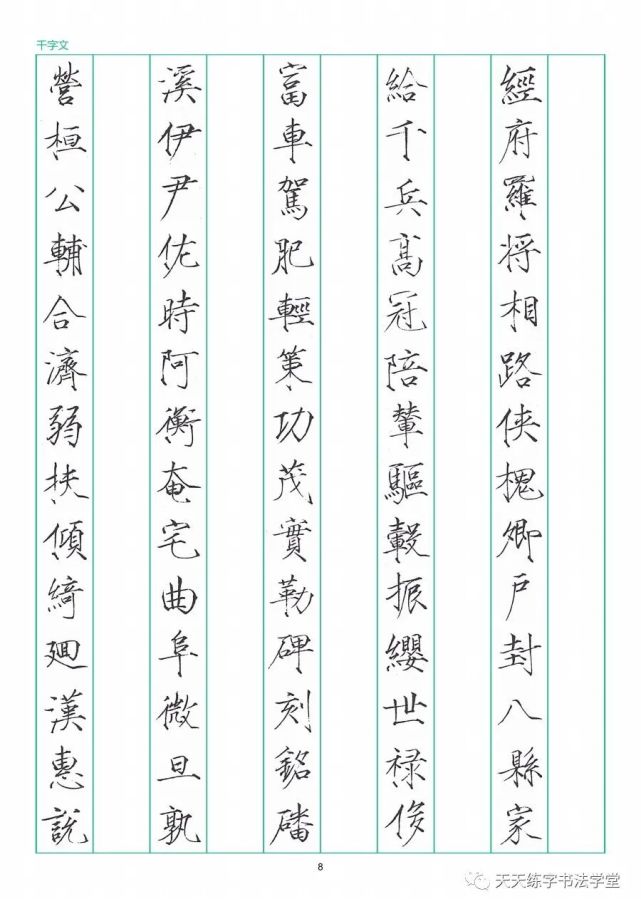 千字文
經府羅将相路侠槐卿戶封八縣家
給千兵髙冠陪輦驅轂振纓世禄侈
富車駕肥輕策功茂實勒碑刻銘磻
溪伊尹佐時阿衡奄宅曲阜微旦孰
營桓公輔合濟弱扶傾綺迴漢惠說
8
天天练字书法学堂